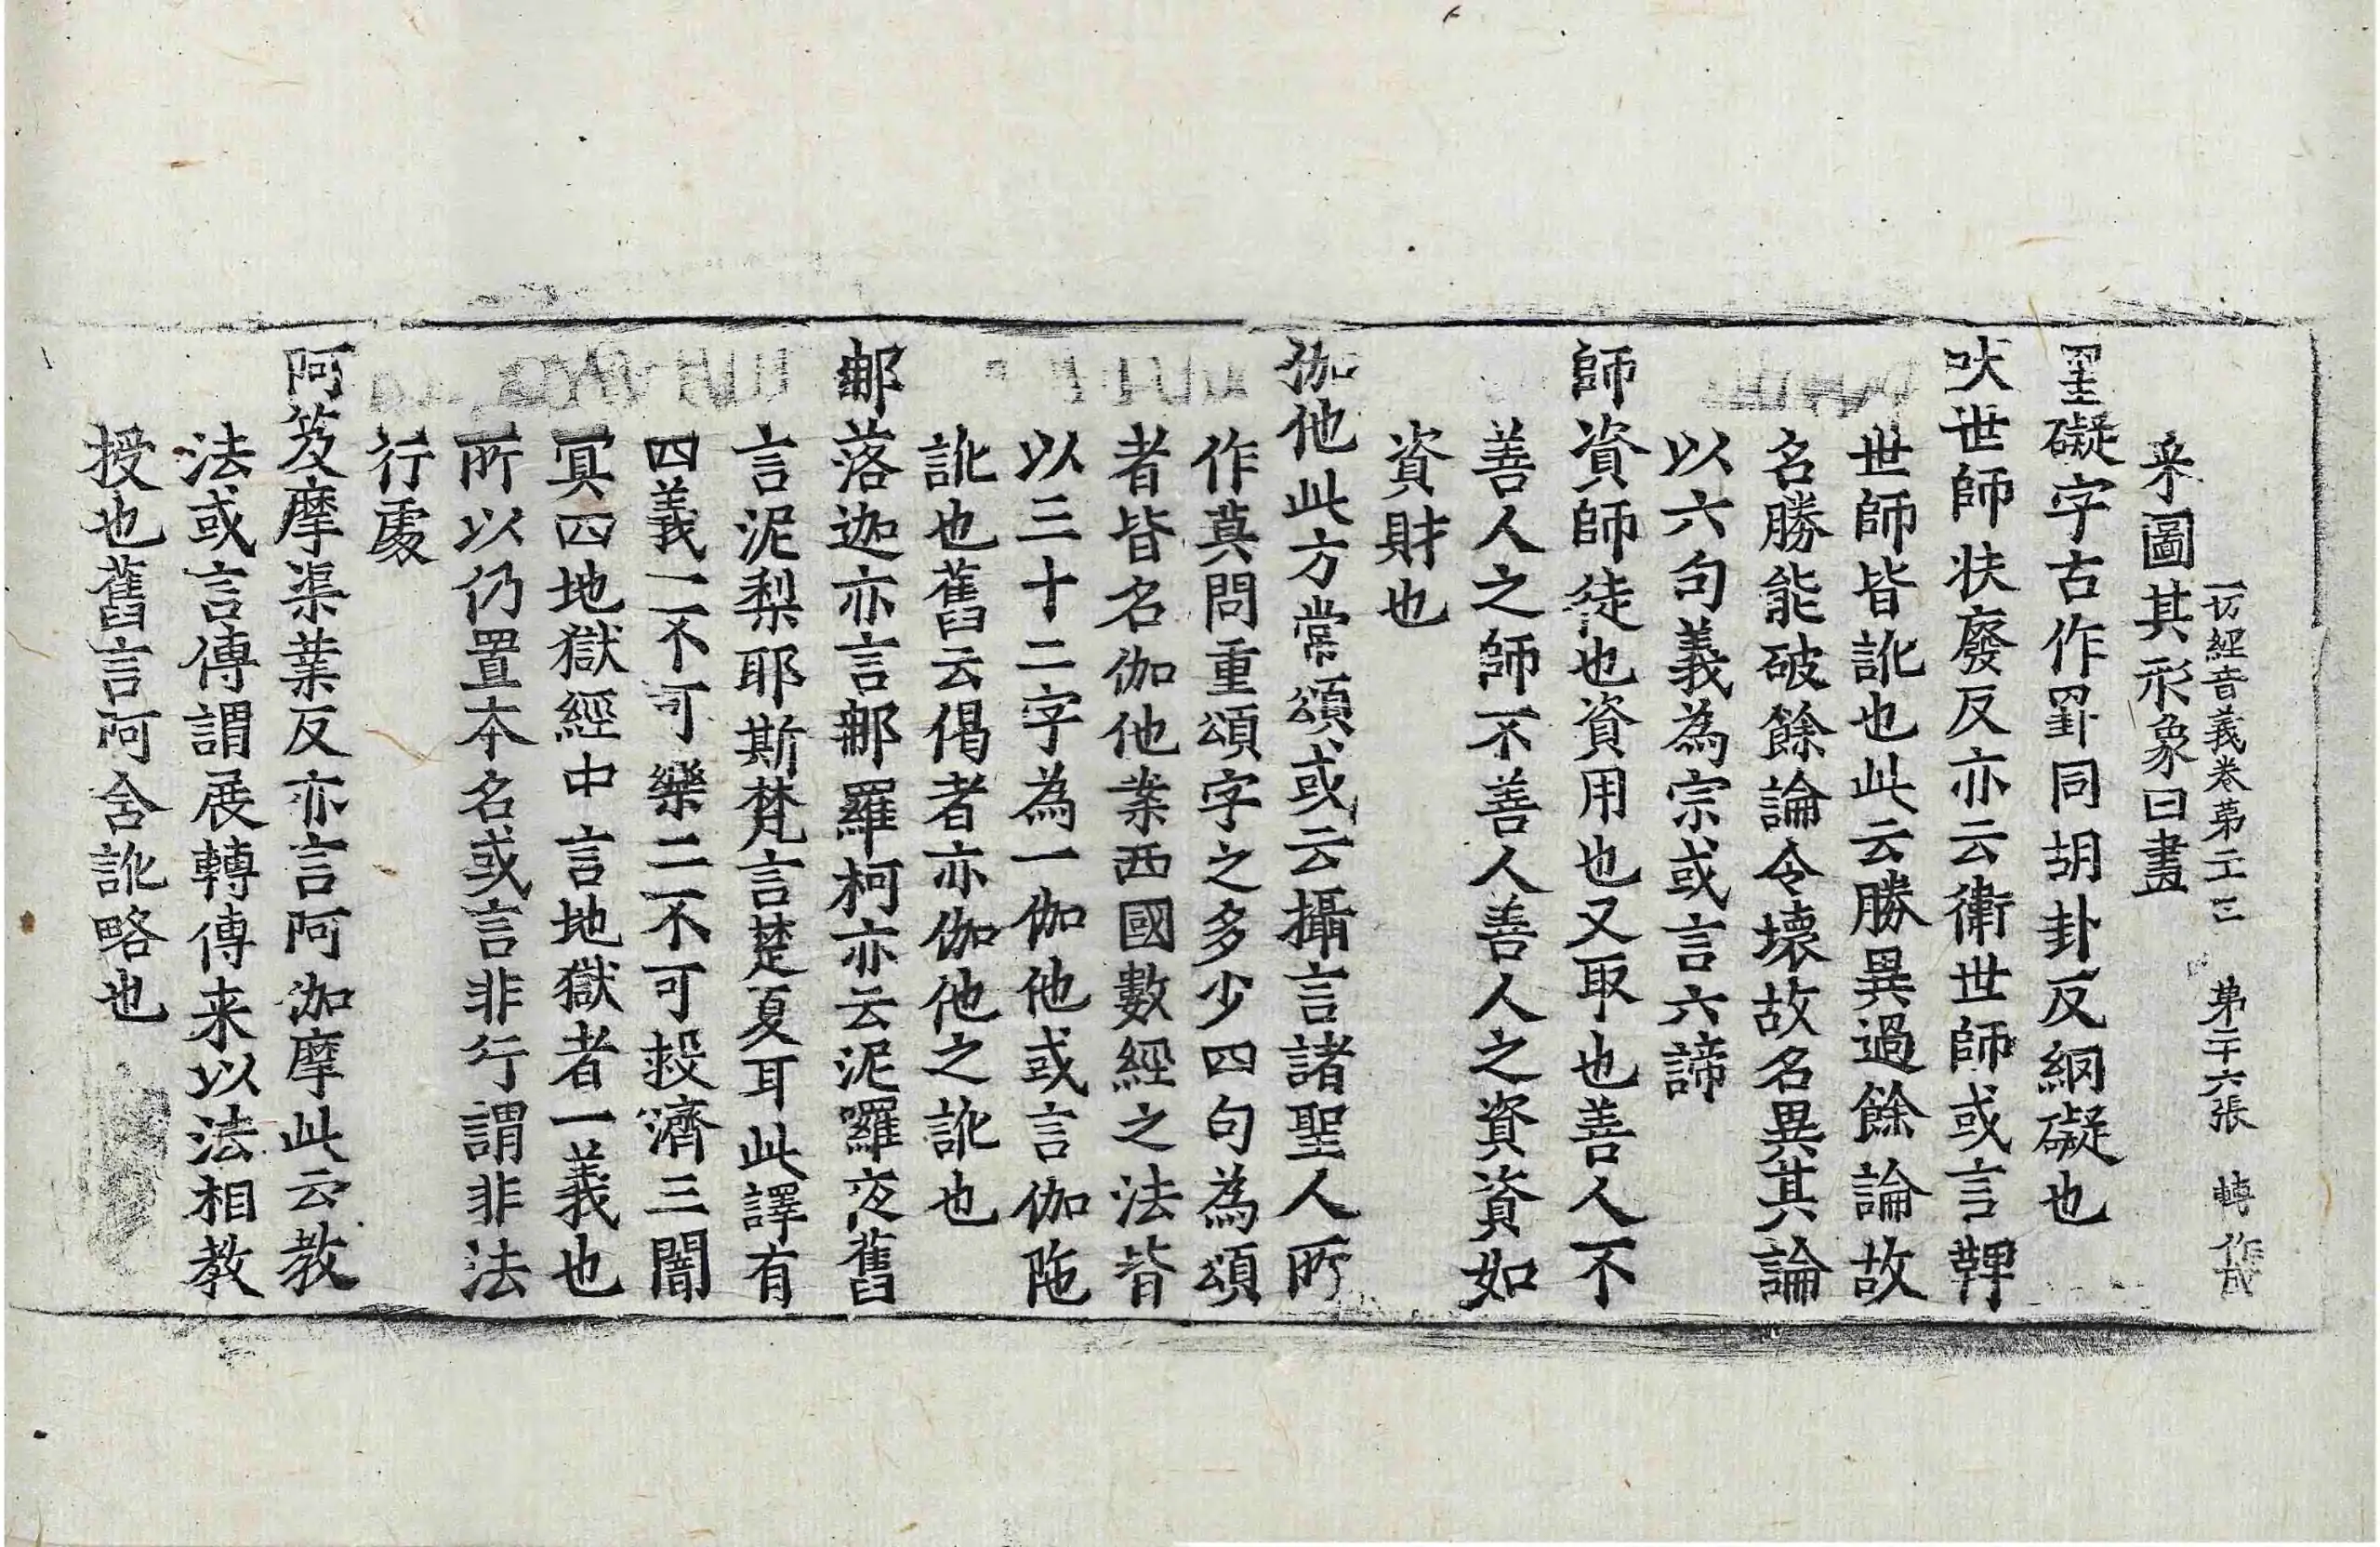 一切經音義卷第二十三 第二十六張 轉 作成
采圖其形象曰畫
罣礙字古作罫同胡卦反網礙也
吠世師扶廢反亦云衛世師或言鞞
世師皆訛也此云勝異過餘論故
名勝能破餘論令壞故名異其論
以六句義為宗或言六諦
師資師徒也資用也又取也善人不
善人之師不善人善人之資資如
資財也
伽他此方當頌或云攝言諸聖人所
作莫問重頌字之多少四句為頌
者皆名伽他案西國數經之法皆
以三十二字為一伽他或言伽陁
訛也舊云偈者亦伽他之訛也
那落迦亦言那羅柯亦云泥囉夜舊
言泥梨耶斯梵言楚夏耳此譯有
四義一不可樂二不可救濟三闇
冥四地獄經中言地獄者一義也
所以仍置本名或言非行謂非法
行處
阿笈摩渠葉反亦言阿伽摩此云教
法或言傳謂展轉傳来以法相教
授也舊言阿含訛略也